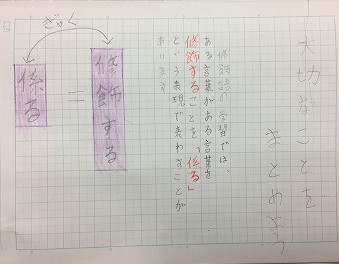 大切なことを
まとめよう
修飾語の学習では、
ある言葉がある言葉を
修飾することを「係る」
という表現で表わすことが
あります
修飾する
＝
係る
ぎゃく